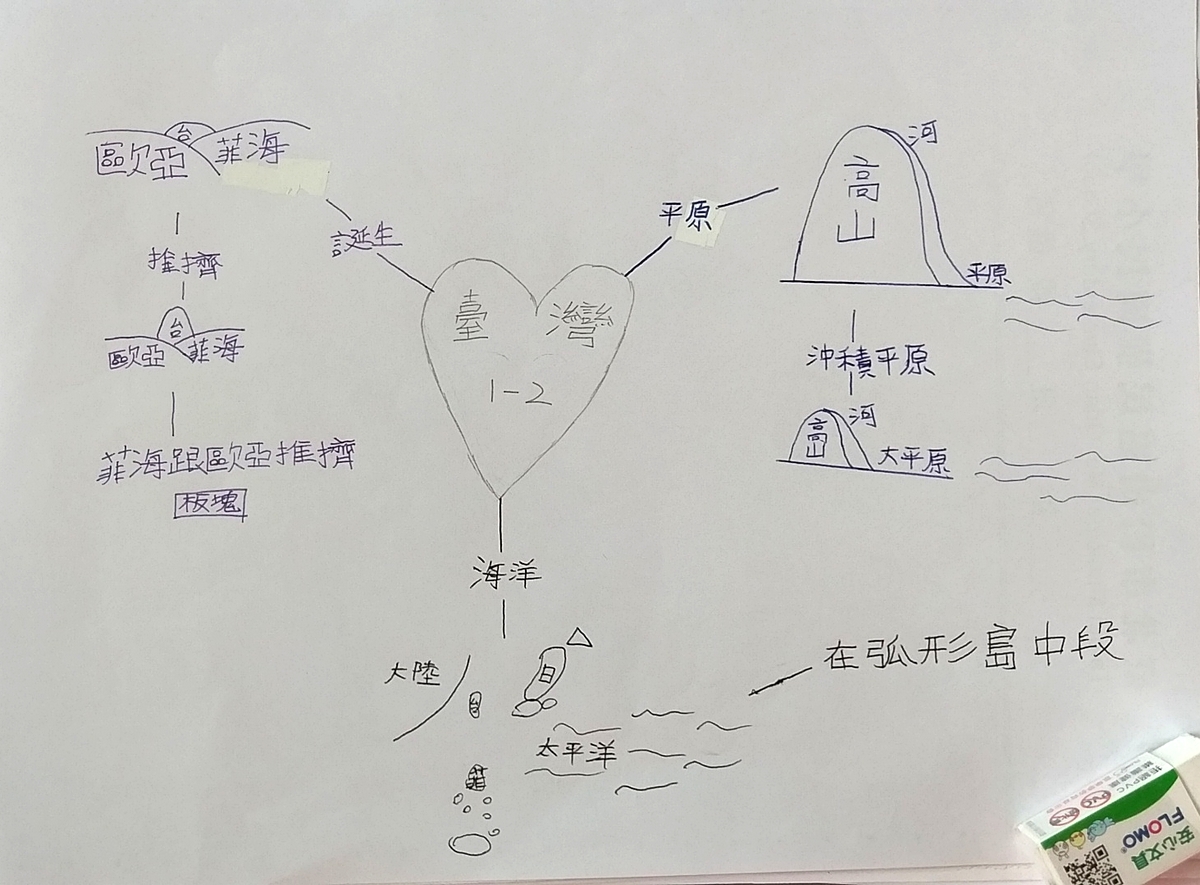 臺灣
1-2
誕生
歐亞
台
菲海
推擠
台
歐亞
菲海
菲海跟歐亞推擠
板塊
平原
高山
河
平原
沖積平原
高山
河
大平原
海洋
大陸
台
日
菲
太平洋
在弧形島中段
安心文具
FLOMO